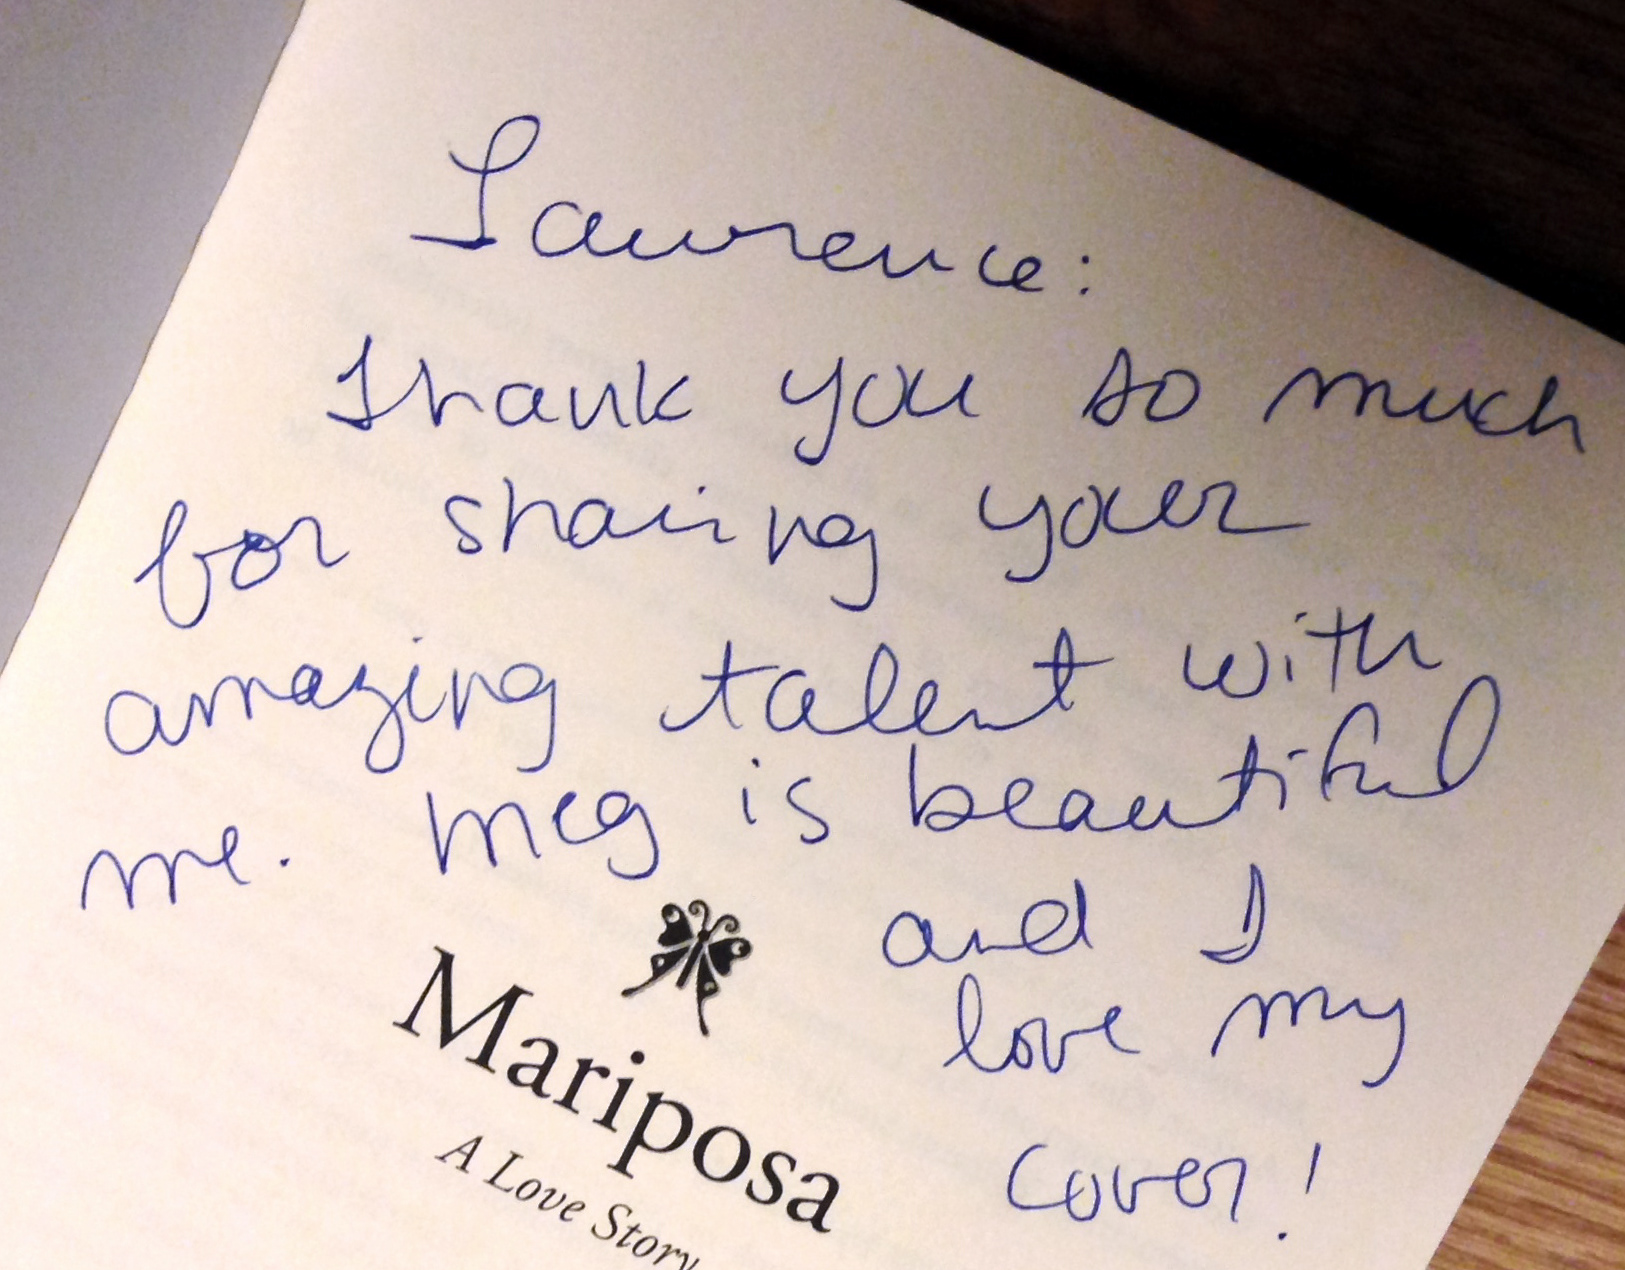 Lawrence:
Thank you so much
for sharing your
amazing talent with
me. Meg is beautiful
and I
love my
cover!
Mariposa
A Love Story